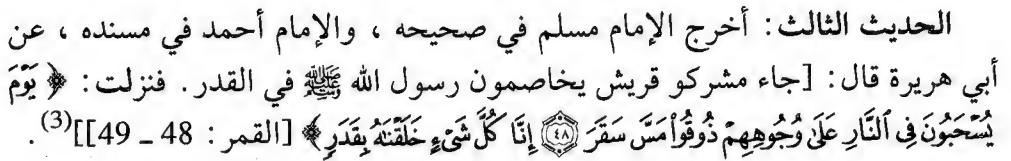 الحديث الثالث : أخرج الإمام مسلم في صحيحه ، والإمام أحمد في مسنده ، عن
أبي هريرة قال : [جاء مشركو قريش يخاصمون رسول الله ﷺ في القدر . فنزلت : ﴿ يَوْمَ
يُسْحَبُونَ فِى ٱلنَّارِ عَلَىٰ وُجُوهِهِمْ ذُوقُوا۟ مَسَّ سَقَرَ ﴿٤٨﴾ إِنَّا كُلَّ شَىْءٍ خَلَقْنَٰهُ بِقَدَرٍ ﴾ [القمر : 48 ـ 49]](3) .